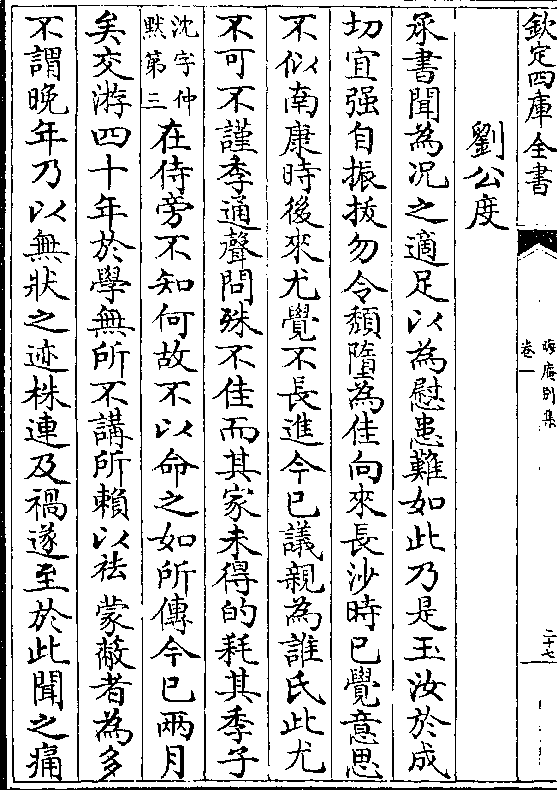 欽定四庫全書
晦庵别集
卷一
二十七
劉公度
承書聞為况之適足以為慰患難如此乃是玉汝於成
切宜强自振拔勿令頽墮為佳向來長沙時已覺意思
不似南康時後來尤覺不長進今已議親為誰氏此尤
不可不謹季通聲問殊不佳而其家未得的耗其季子
沈字仲
默第三
在侍旁不知何故不以命之如所傳今已兩月
矣交游四十年於學無所不講所賴以祛蒙蔽者為多
不謂晚年乃以無狀之迹株連及禍遂至於此聞之痛